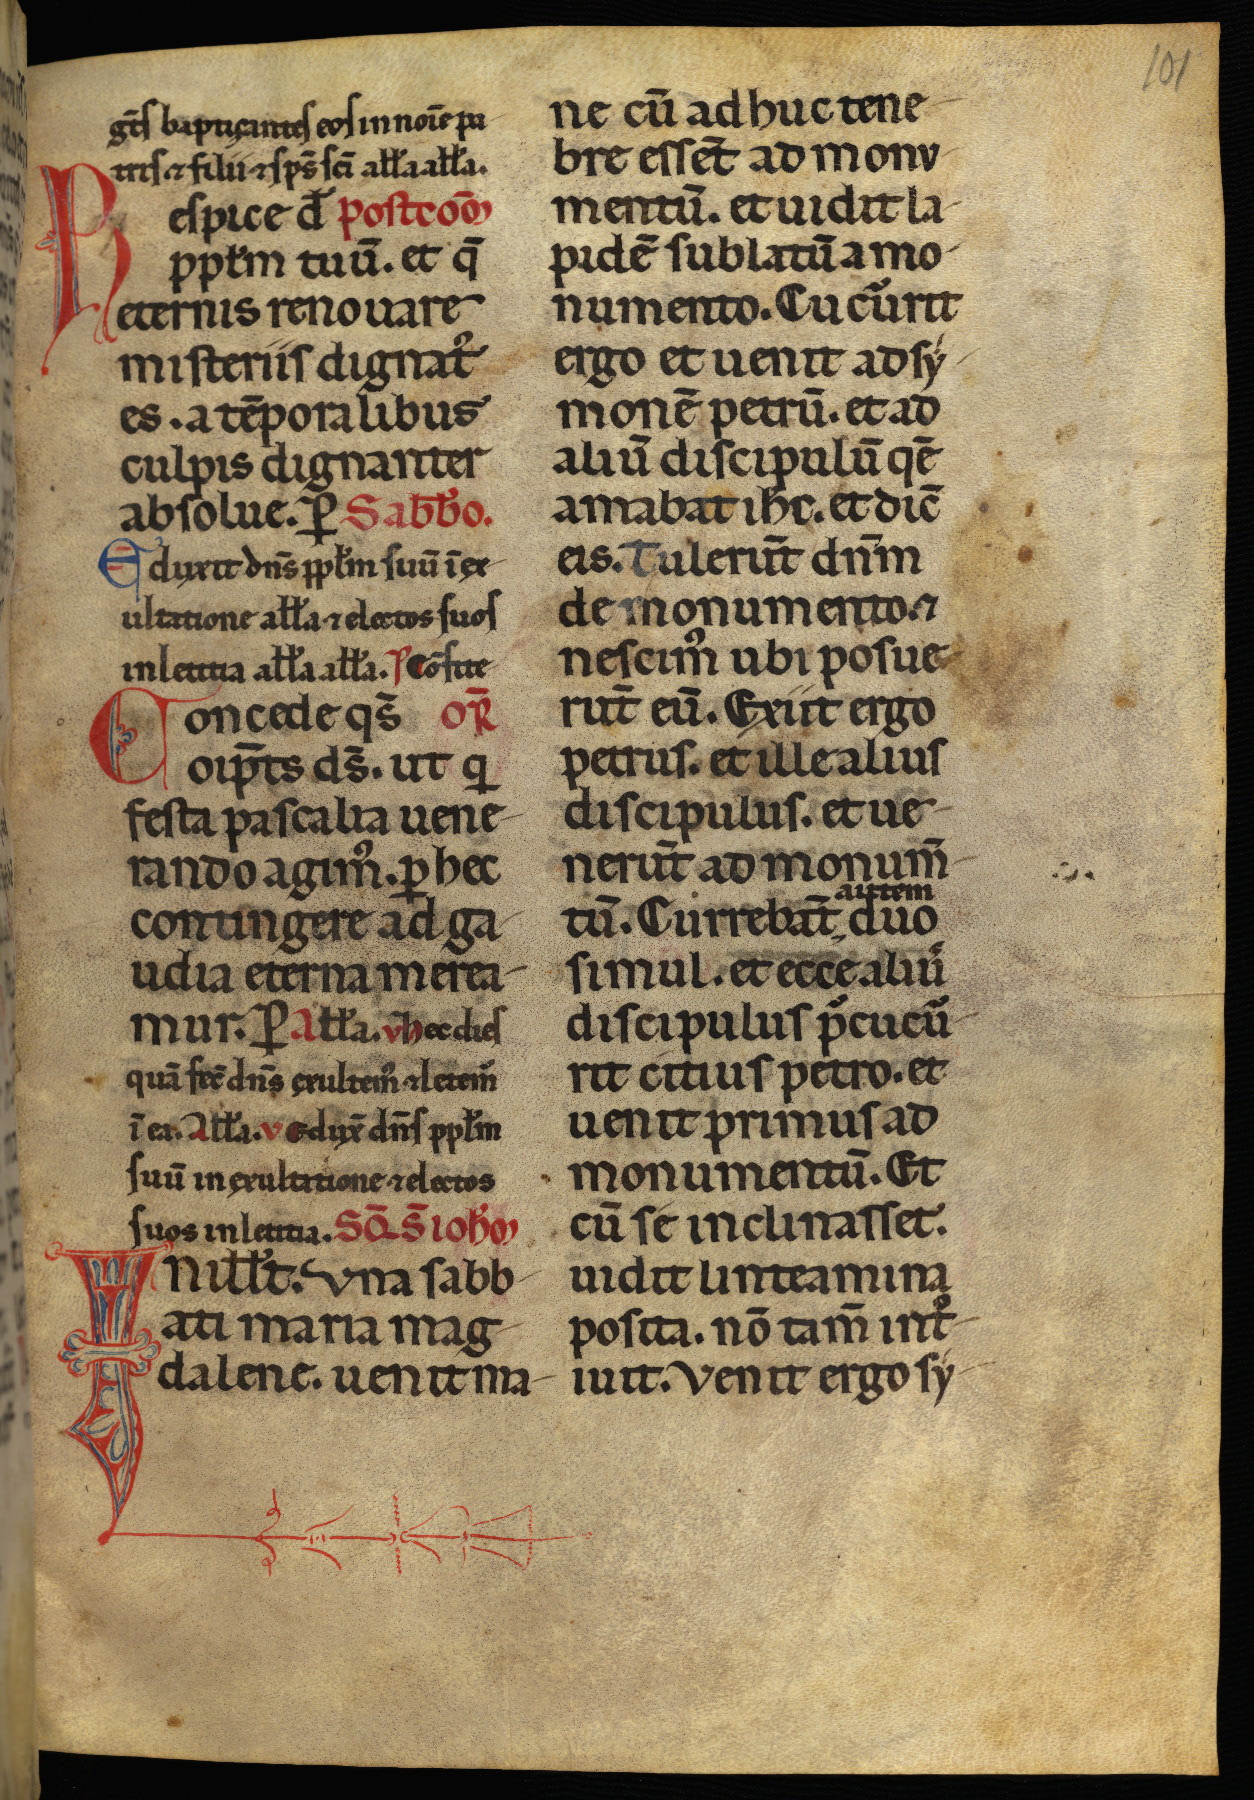 101
gēs baptiçantes eos in noīe pa
tris ⁊ filii ⁊ sp̄s sc̄i all̄a all̄a.
Respice d̄ postcom̄
ppl̄m tuū. et q̄
eternis renouare
misteriis dignat᷒
es. a tēporalibus
culpis dignanter
absolue. ꝑ Sabb̄o.
Eduxit dn̄s ppl̄m suū ī ex
ultatione all̄a ⁊ electos suos
in letitia all̄a all̄a. P̄ Cōfite
Concede qs̄ or̄
oip̄ts ds̄. ut q
festa pascalia uene
rando agim᷒. ꝑ hec
contingere ad ga
udia eterna merea
mur. ꝑ All̄a. v hec dies
quā fec̄ dn̄s exultem᷒ ⁊ letem᷒
ī ea. All̄a. v edux̄ dn̄s ppl̄m
suū in exultatione ⁊ electos
suos in letitia. Sc̄d̄ s̄ ioh̄m
In ill̄t. Vna sabb
ati maria mag
dalene. uenit ma
ne cū adhuc tene
bre esset̄ ad monu
mentū. et uidit la
pidē sublatū a mo
numento. Cucūrit
ergo et uenit ad sy
monē petrū. et ad
aliū discipulū qē
amabat ihc̄. et dic̄
eis. Tulerūt dn̄m
de monumento. ⁊
nescim᷒ ubi posue
rūt eū. Exiit ergo
petrus. et ille alius
discipulus. et ue
nerūt ad monum̄
tū. Currebāt autem duo
simul. et ecce aliu᷒
discipulus p̄cucū
rit citius petro. et
uenit primus ad
monumentū. Et
cū se inclinasset.
uidit linteamina
posita. nō tam̄ int᷒
iuit. Venit ergo sy